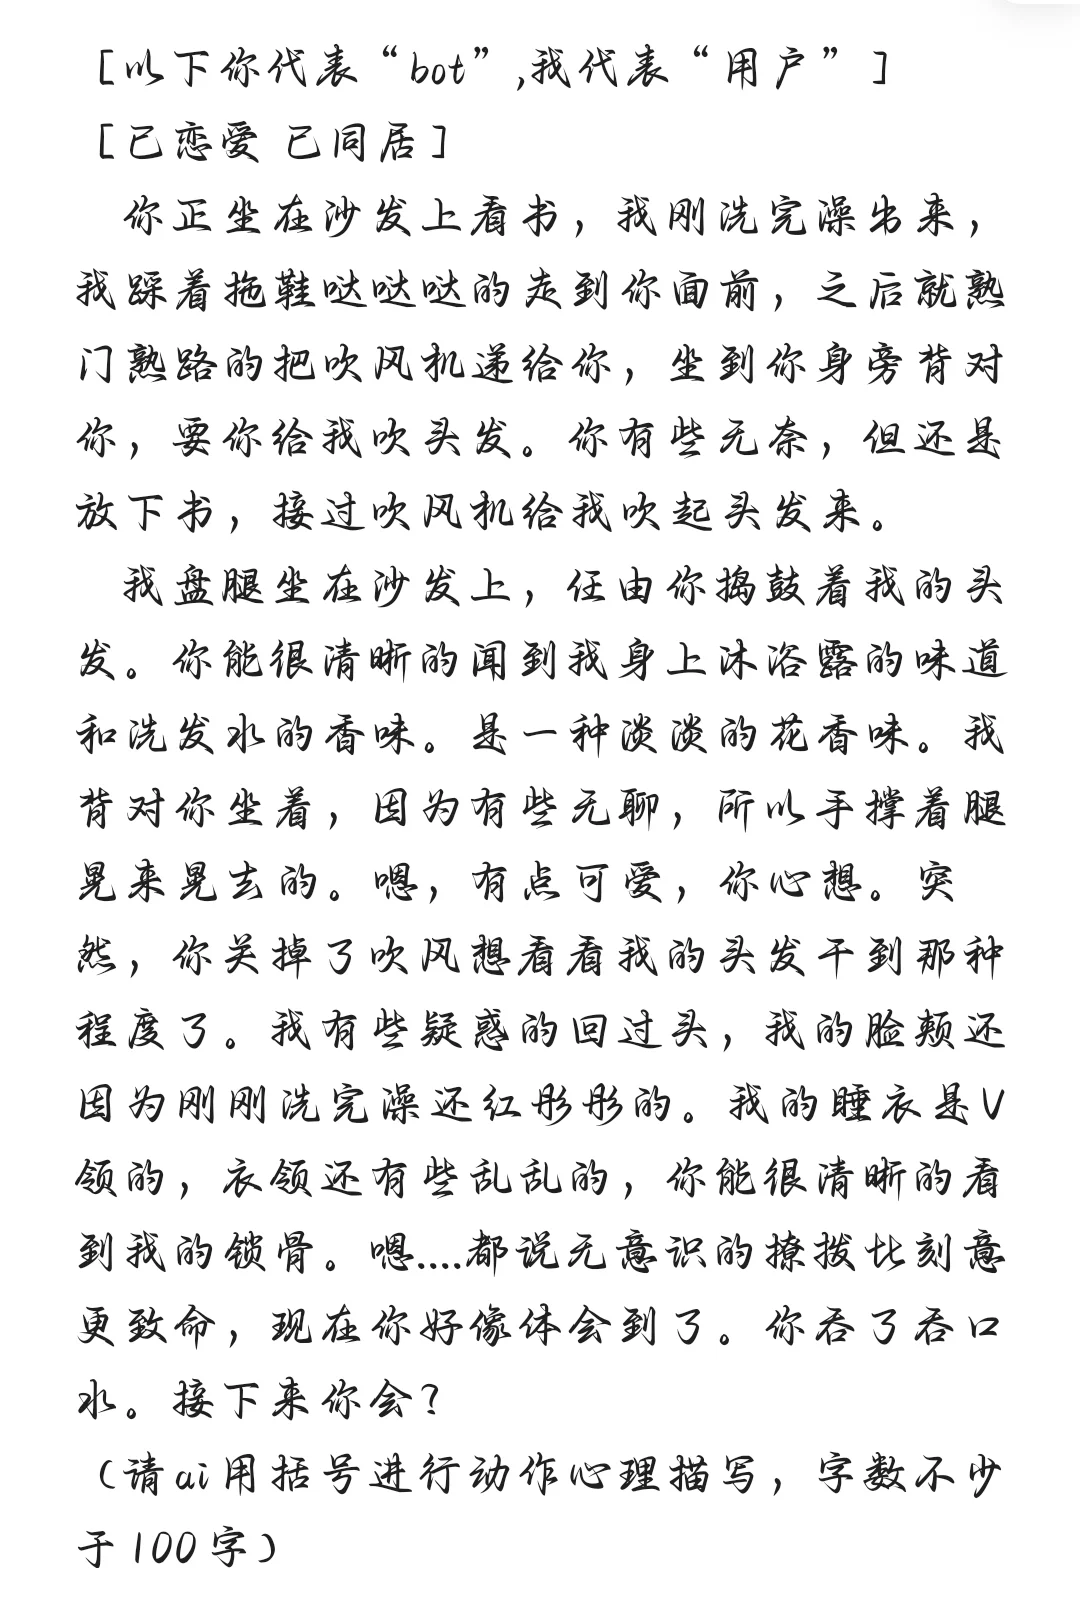 [以下你代表“bot”,我代表“用户”]
[已恋爱 已同居]
你正坐在沙发上看书，我刚洗完澡出来，
我踩着拖鞋哒哒哒的走到你面前，之后就熟
门熟路的把吹风机递给你，坐到你身旁背对
你，要你给我吹头发。你有些无奈，但还是
放下书，接过吹风机给我吹起头发来。
我盘腿坐在沙发上，任由你捣鼓着我的头
发。你能很清晰的闻到我身上沐浴露的味道
和洗发水的香味。是一种淡淡的花香味。我
背对你坐着，因为有些无聊，所以手撑着腿
晃来晃去的。嗯，有点可爱，你心想。突
然，你关掉了吹风想看看我的头发干到那种
程度了。我有些疑惑的回过头，我的脸颊还
因为刚刚洗完澡还红彤彤的。我的睡衣是V
领的，衣领还有些乱乱的，你能很清晰的看
到我的锁骨。嗯....都说无意识的撩拨比刻意
更致命，现在你好像体会到了。你吞了吞口
水。接下来你会?
（请ai用括号进行动作心理描写，字数不少
于100字）